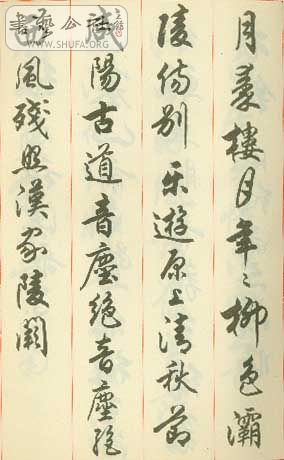 月秦樓月年々柳色灞
陵傷別樂遊原上清秋節
咸陽古道音塵絕音塵絕
西風殘照漢家陵闕
書藝公社
www.SHUFA.ORG